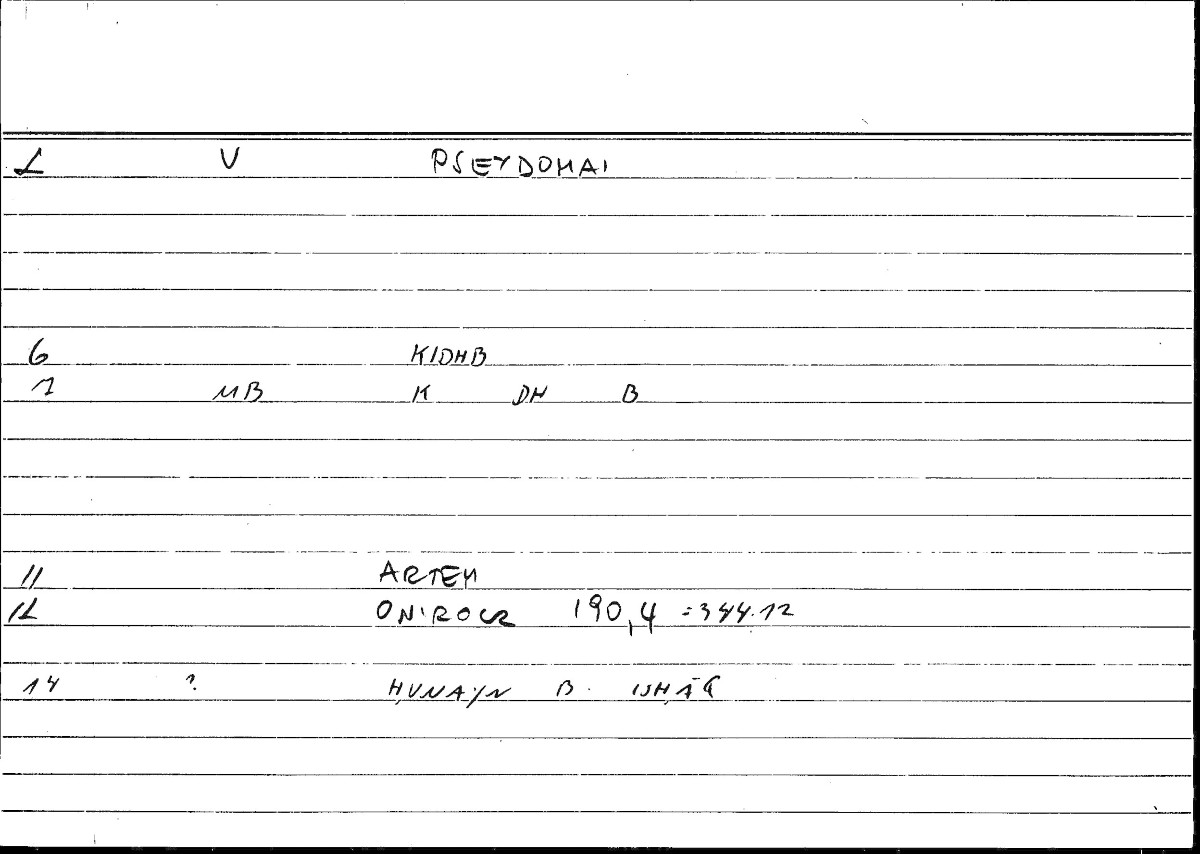 L V PSEYDOMAI
6 KIDHB
7 MB K DH B
11 ARTEM
12 ONIROCR 190,4 =344.12
14 ? ḤUNAYN B. ISḤĀQ